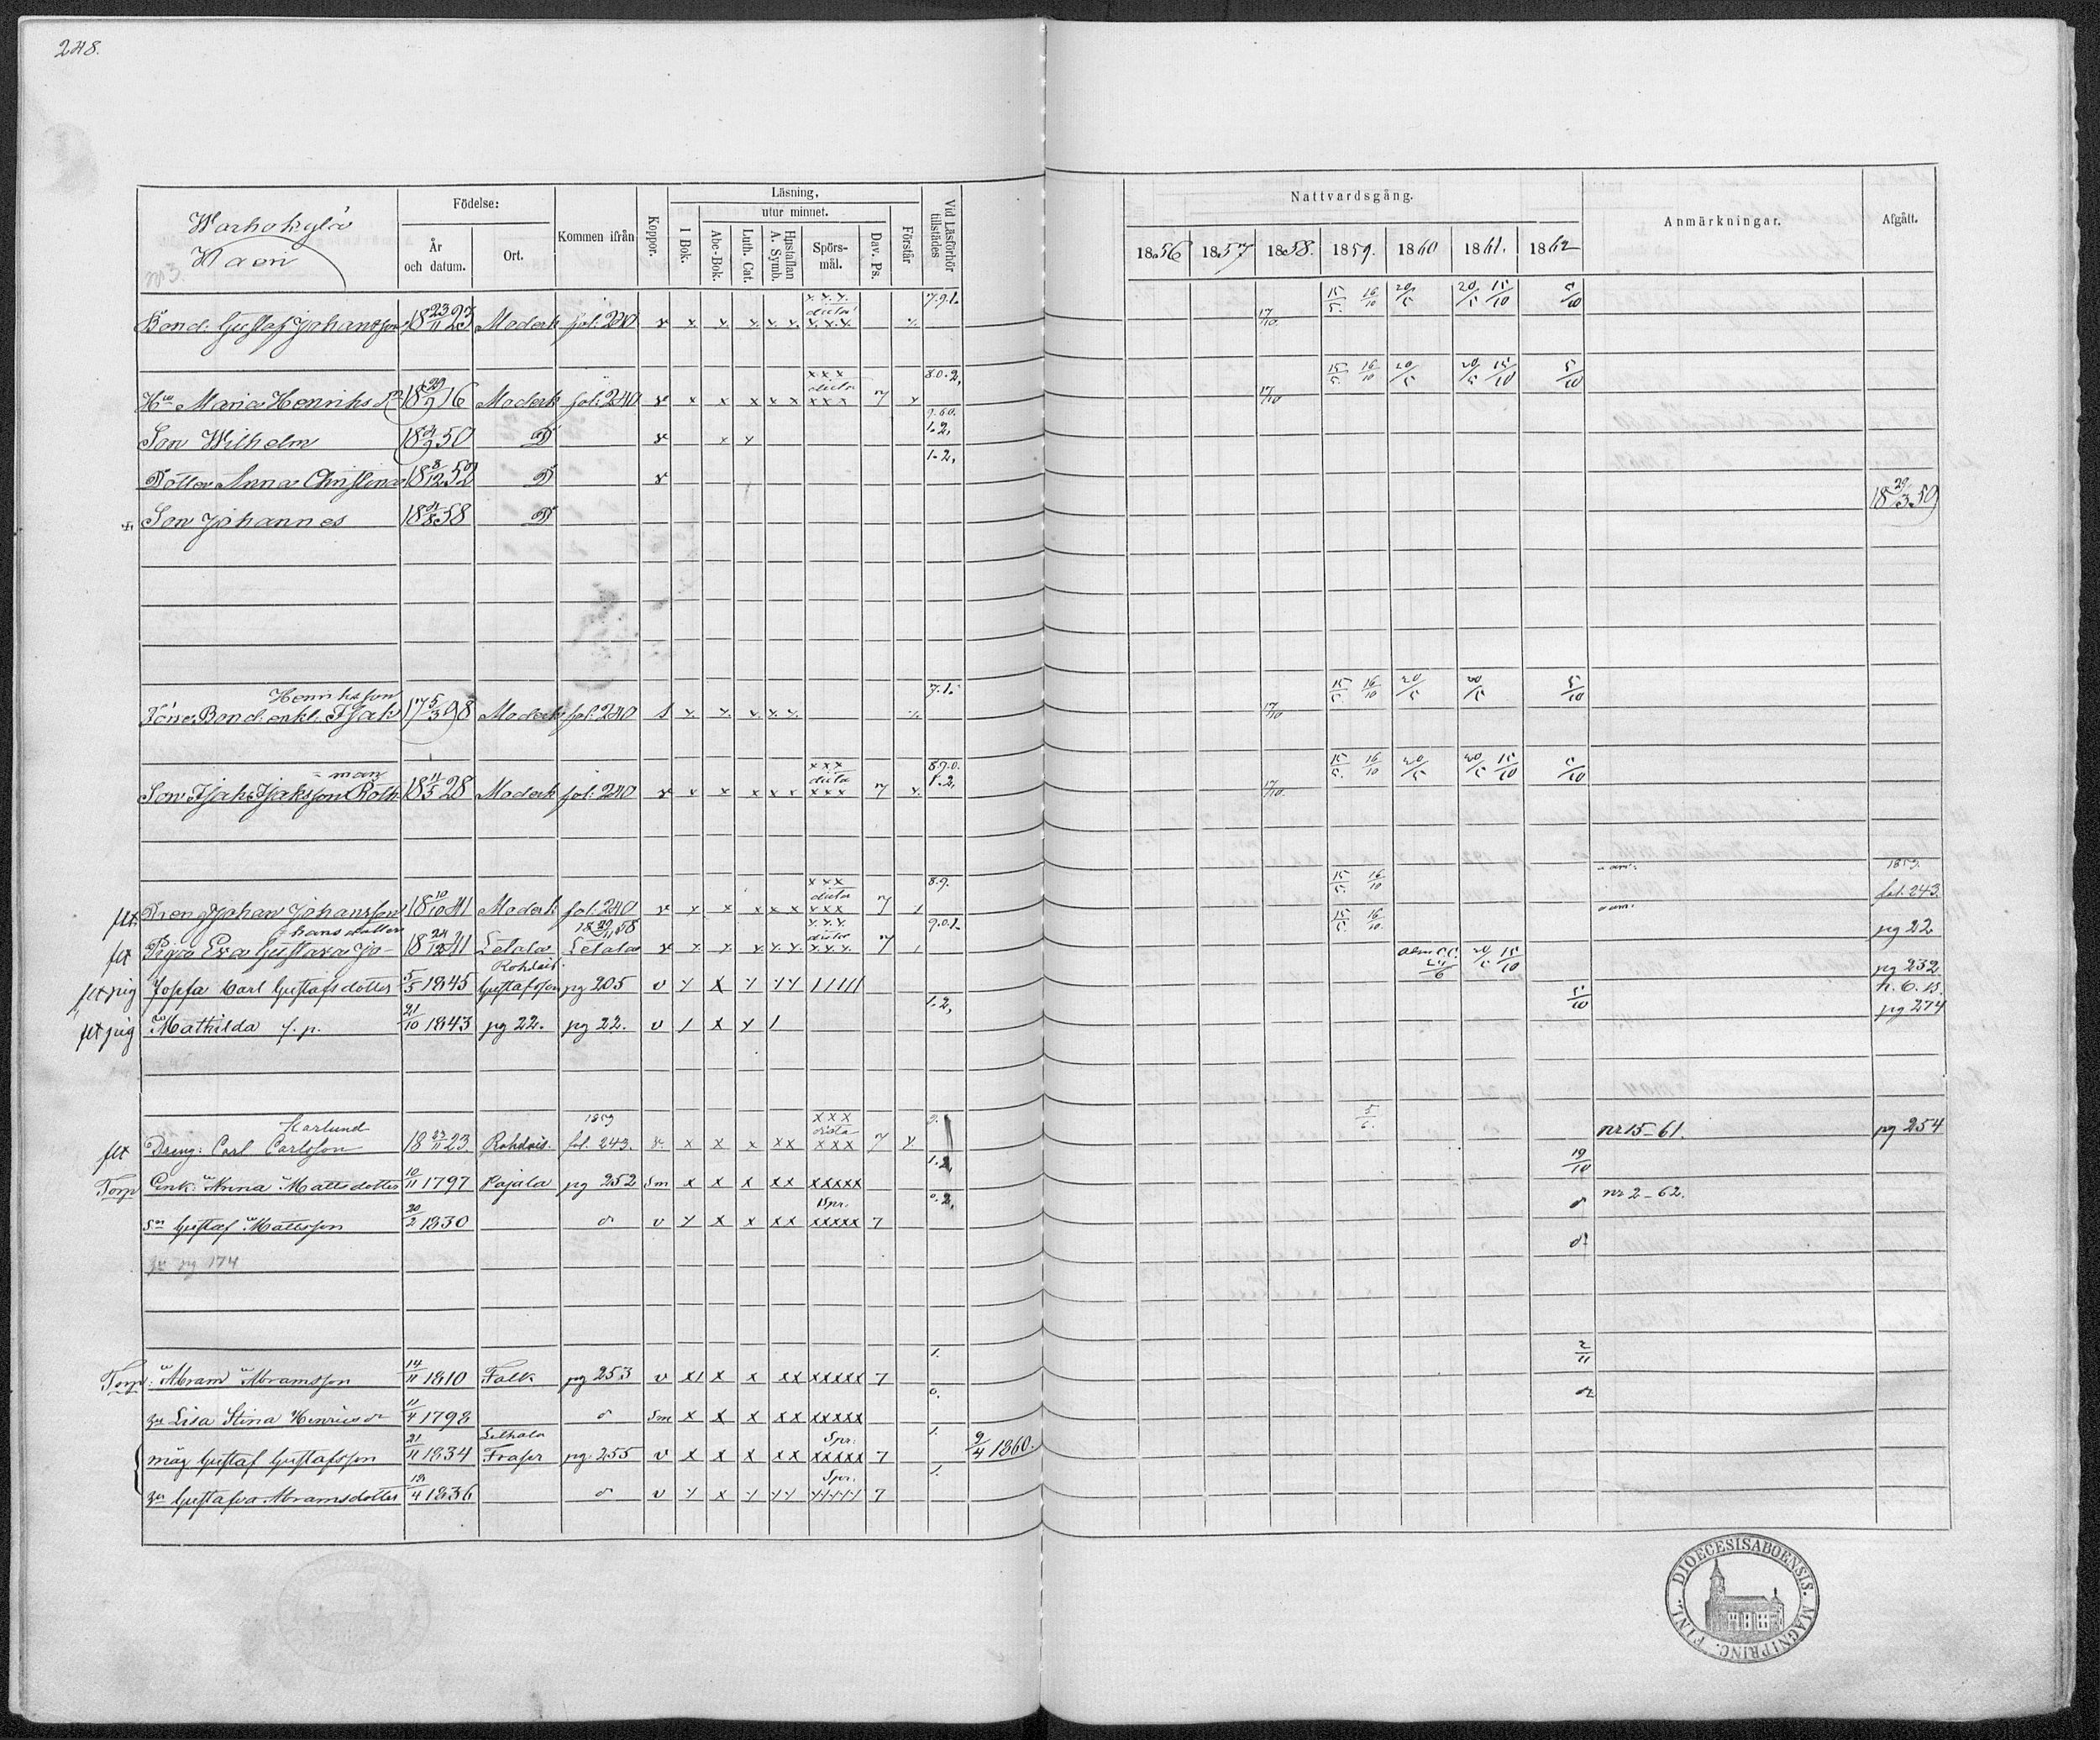 248.
Warhokylä
Haen
nr 3.
Födelse:
År och datum.
Ort.
Kommen ifrån
Koppor.
Läsning,
I Bok.
utur minnet.
Abc-Bok.
Luth. Cat.
Hustaflan A. Symb.
Spörs-mål.
Dav. Ps.
Förstår
Vid Läsförhör tillstädes
Nattvardsgång.
1856 1857 1858. 1859. 1860 1861. 1862
Anmärkningar.
Afgått.
x.x.x. dicta 7.9.1. 15/5. 16/10 20/5 20/5 15/10 5/10
Bond. Gustaf Johansson 18 23/11 23 Moderk fol. 240 v x. x. x. x. x. x.x.x. 17/10.
x x x dicta 8.0.2, 15/5. 16/10 20/5 20/5 15/10 5/10
Hu Maria Henriksdr 18 29/9 16 Moderk fol. 240 v x x x x x x x x 7 x 17/10
9.60.
Son Wilhelm 50 D v x x 1.2,
Dotter Anna Christina 18 8/12 52 D v 1.2,
Son Johannes 58 D 18 29/3 59
Henriksson 7.1. 15/5. 16/10 20/5 20/5 5/10
Bond. enkl. Isak 17 5/3 98 Moderk fol. 240 x. x. x. x. x. 17/10
man x x x dicta 8.9.0. 1.2, 15/5. 16/10 20/5 20/5 15/10 5/10
Son Isak Isaksson Roth 18 11/5 28 Moderk fol. 240 v x x x x x x x x 7 x. 17/10.
x x x dicta 8.9. 15/5. 16/10 1859.
flt Dreng Johan Johansson 18 10/10 41 Moderk fol. 240 v x x x x x x x x 7 fol. 243.
hansdotter x.x.x. dicta 9.0.1. 15/5. 16/10.
flt Piga Eva Gustava Jo- 18 24/12 41 Letala Letala v x. x. x. x. x. x.x.x. 7 pg 22
Rohdais. 24/6 20/5 15/10 pg 232
flt pig Josefa Carl Gustafsdotter 5/5 1845 Gustafsson pg 205 v
1.2, 5/10
flt pig Mathilda f. p. 21/10 1843 pg 22. pg 22. v pg 274
Karlund 1859 x x x dicta 9. 5/6.
flt Dreng: Carl Carlsson 18 23. Rohdais. fol. 243. x x x x x x x x 7 x nr 15-61. pg 254
Torp Enk: Anna Mattsdotter 10/11 1797 Pajala pg 252 Sm x x x x x x x x x x 1.2, 19/10
Spr. 0.2, nr 2-62.
Sn Gustaf Mattsson 20/2 1830 d v x x x x x x x x x x 7
pg 174
Torp: Abram Abramsson 14/11 1810 Falk pg 253 v x x x x x x x x x x 7 1. 2/11
hu Lisa Stina Henricsdr 11/4 1798 d Sm x x x x x x x x x x 0.
Lethala Spr: 1. 9/4 1860.
måg Gustaf Gustafsson 21/11 1834 Fraser pg 255 v x x x x x x x x x x 7
Spr. 1.
hu Gustafva Abramsdotter 1836 d v 7
DIOECESIS ABOENSIS. MAGNI PRINC. FINL.